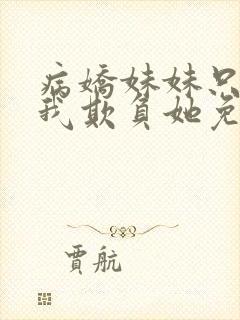 病嬌妹妹只
我欺負她免
賈航